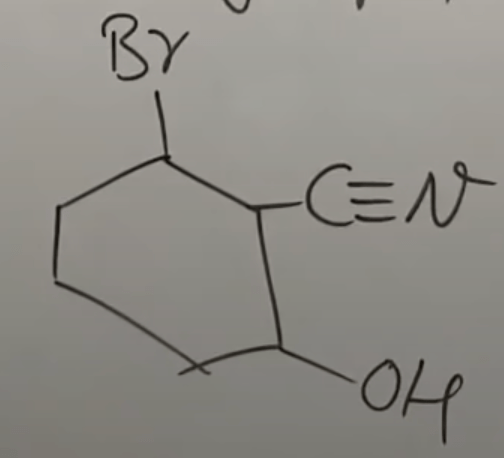 Br
C≡N
OH